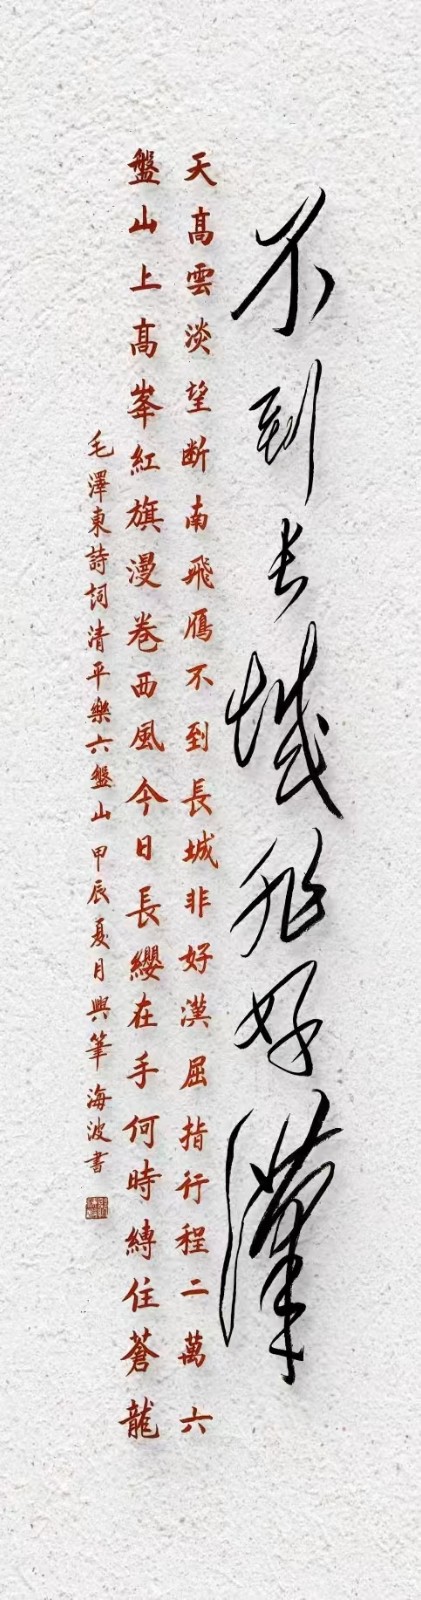 不到长城非好漢
天高雲淡望断南飛鴈不到長城非好漢屈指行程二萬六
盤山上高峯紅旗漫卷西風今日長纓在手何時縛住蒼龍
毛澤東詩詞清平樂六盤山 甲辰夏月興筆海波書